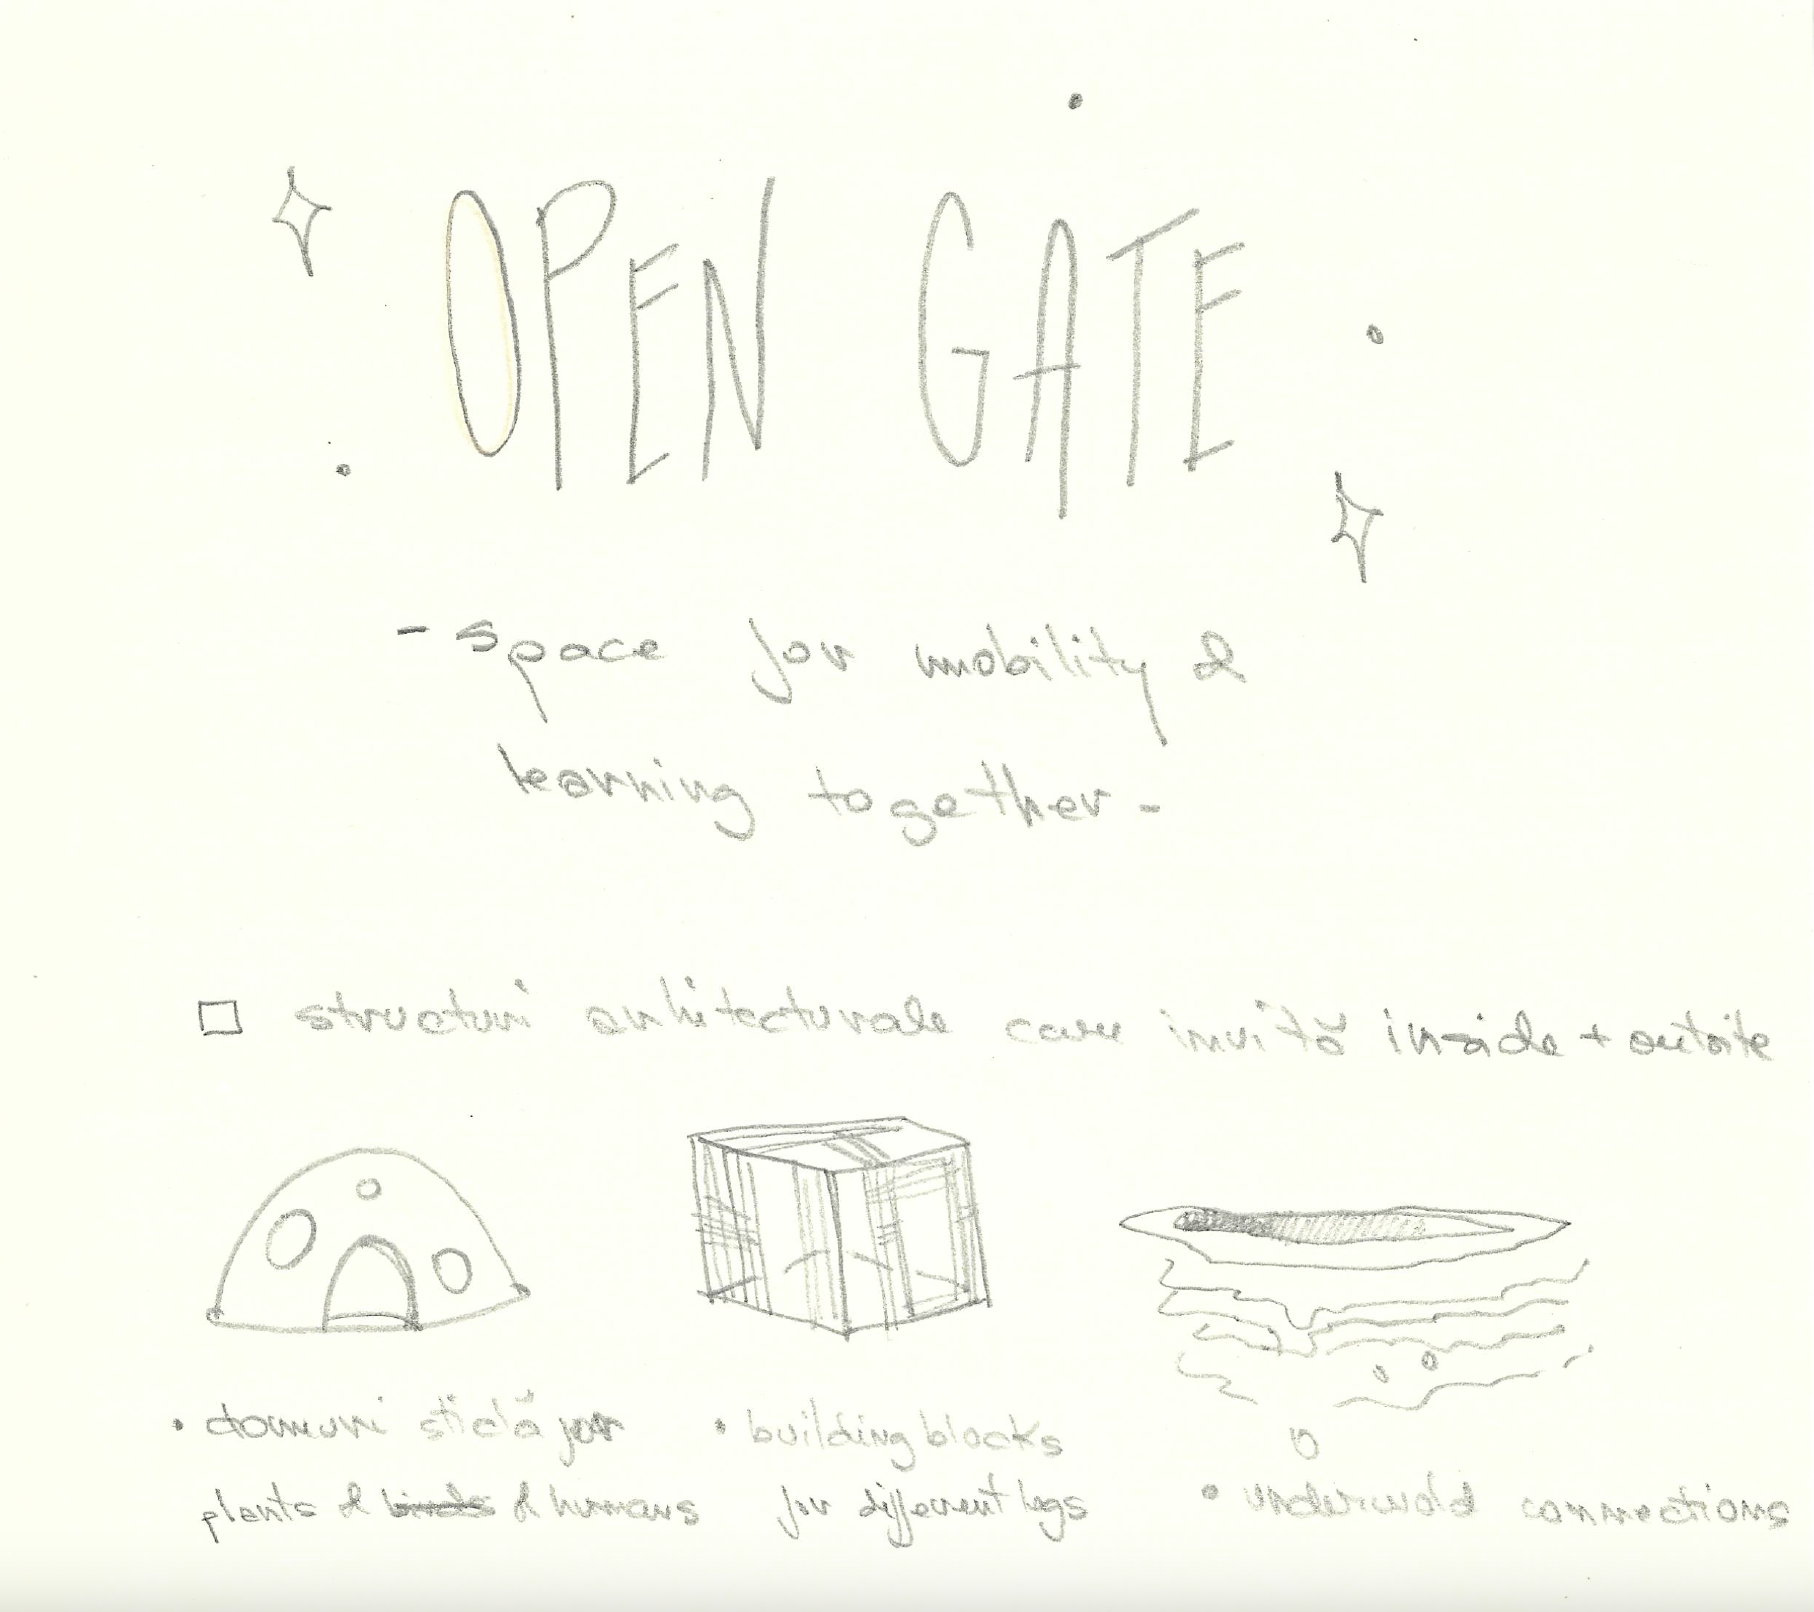 OPEN GATE
- space for mobility &
learning together -
structuri arhitecturale care invită inside + outsite
• domuri sticlă for
plants & birds & humans
• building blocks
for different legs
• underwold connections